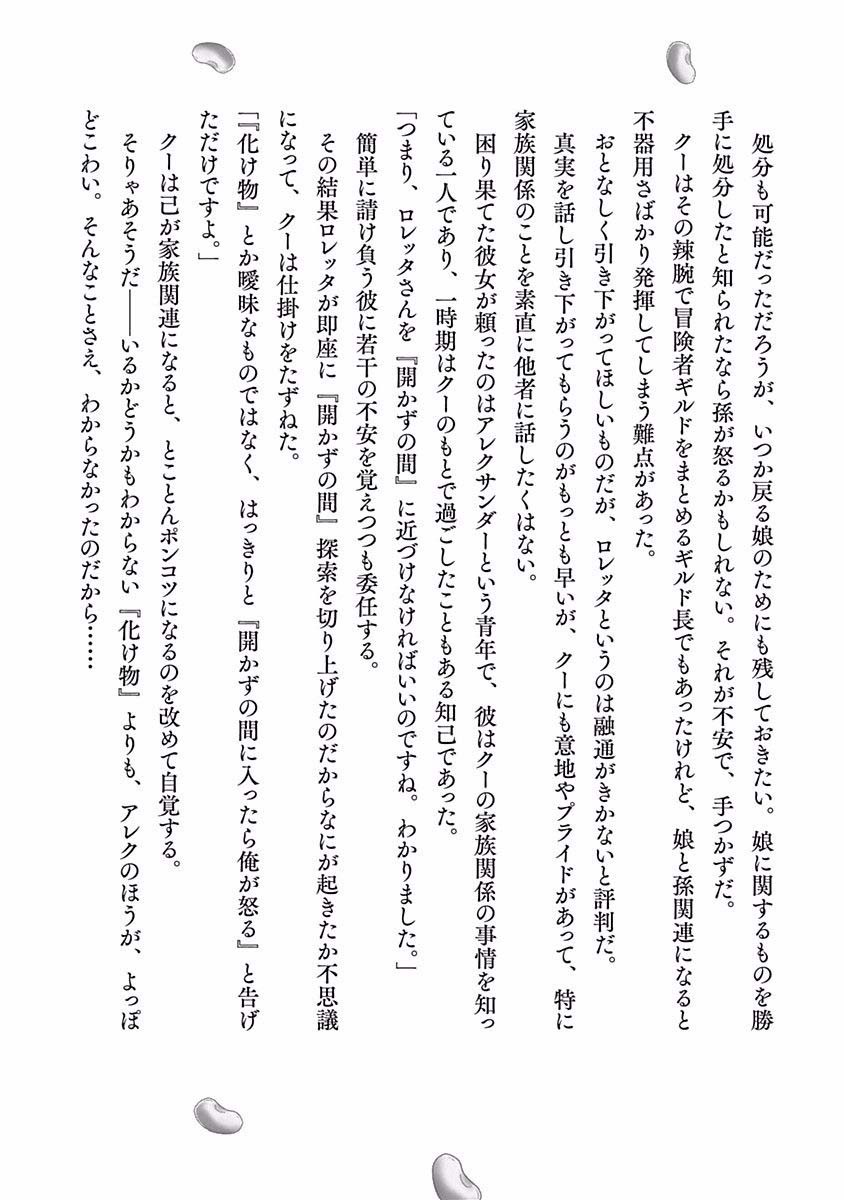 処分も可能だっただろうが、いつか戻る娘のためにも残しておきたい。娘に関するものを勝
手に処分したと知られたなら孫が怒るかもしれない。それが不安で、手つかずだ。
クーはその辣腕で冒険者ギルドをまとめるギルド長でもあったけれど、娘と孫関連になると
不器用さばかり発揮してしまう難点があった。
おとなしく引き下がってほしいものだが、ロレッタというのは融通がきかないと評判だ。
真実を話し引き下がってもらうのがもっとも早いが、クーにも意地やプライドがあって、特に
家族関係のことを素直に他者に話したくはない。
困り果てた彼女が頼ったのはアレクサンダーという青年で、彼はクーの家族関係の事情を知っ
ている一人であり、一時期はクーのもとで過ごしたこともある知己であった。
「つまり、ロレッタさんを『開かずの間』に近づけなければいいのですね。わかりました。」
簡単に請け負う彼に若干の不安を覚えつつも委任する。
その結果ロレッタが即座に『開かずの間』探索を切り上げたのだからなにが起きたか不思議
になって、クーは仕掛けをたずねた。
「『化け物』とか曖昧なものではなく、はっきりと『開かずの間に入ったら俺が怒る』と告げ
ただけですよ。」
クーは己が家族関連になると、とことんポンコツになるのを改めて自覚する。
そりゃあそうだ――いるかどうかもわからない『化け物』よりも、アレクのほうが、よっぽ
どこわい。そんなことさえ、わからなかったのだから……